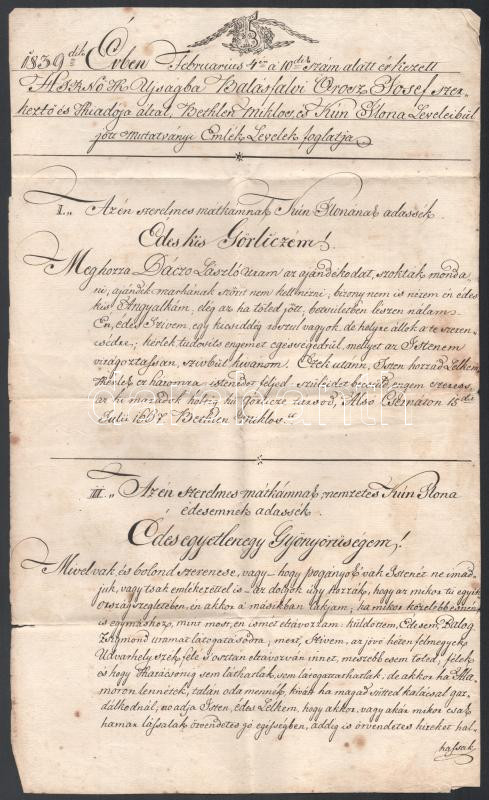 1839dik Évben Februarius 4én a 10dik Szám alatt érkezett
Ujságba Balásfalvi Orosz Josef szer-
keztő és Kiadója által, Bethlen Miklos, és Kún Ilona Leveleiből
jött Mutatványi Emlék Levelek foglatja
I. Az én szerelmes mátkámnak Kún Ilonának adassék.
Edes kis Görliczém!
Meghozta Dáczo László Uram az ajándékodat, szoktak monda-
ni, ajándék marhának szőrit nem kell nézni, bizony nem is nézem én édes
kis Angyalkám, elég az ha tőled jött, betsületben lészen nálam.
Én, édes Szivem, egy kicsiddég roszul vagyok, de helyre állok a te szeren-
csédre; kérlek tudosits engemet egésségedrül, mellyet az Istenem
virágoztasson, szivbül kivánom. Ezek utánn, Isten hozzád Lelkem,
istenedet féljed szüleidet becsüld engem szeress,
az ki maradok holtig hív görlicze társod, Alsó Csernáton 15dik
Julii 1657. Bethlen Miklos
II. Az én szerelmes mátkámnak, nemzetes Kún Ilona
édesemnek adassék.
Édes egyetlenegy Gyönyörüségem!
Mivel vak, és bolond szerencse, vagy – hogy pogányok vak Istenét ne imád-
juk, vagy tsak emlékezettel is – az dolgok úgy hozták, hogy az mikor te egyik
ország szegletében, én akkor a másikban lakjam, ha mikor közelebb esünk
is egymáshoz, mint most, én ismét eltávozzam: küldöttem, Édesem, Balog
Zsigmond uramat látogatásodra; mert, Szivem, az jövő héten felmegyek
Udvarhely Szék felé s osztán eltávozván innét, meszebb esem tőled, félek
és hogy Karácsonig sem láthatlak, sem látogattathatlak, de akkor ha
máron lennétek, talán oda mennék, kiván ha magad sütted kalácsal gaz-
dálkodnál, no adja Isten, édes Lelkem, hogy akkor, vagy akár mikor csak
hamar lássalak örvendetes jó egésségben, addig is örvendetes hireket hal-
hassak